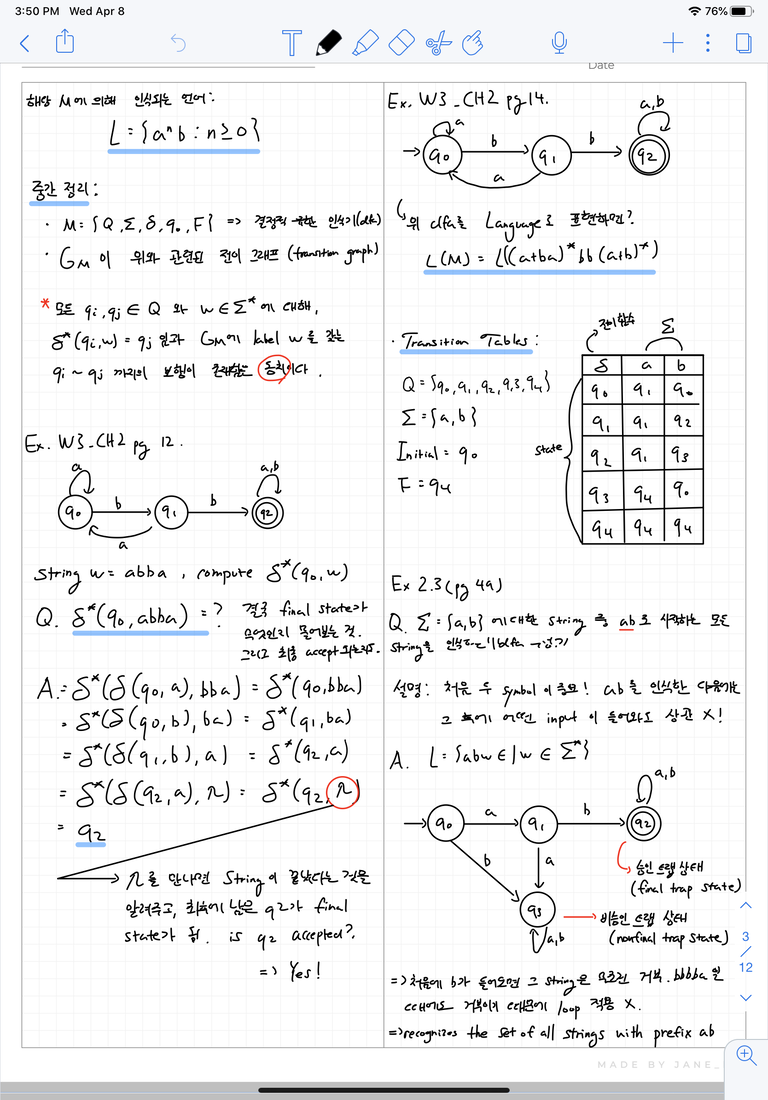 3:50 PM Wed Apr 8
76%
Date
해당 M에 의해 인식되는 언어:
L = {aⁿb : n ≥ 0}
중간 정리:
· M = {Q, Σ, δ, q₀, F} => 결정적 유한 인식기(dfa)
· G_M 이 위와 관련된 전이 그래프 (transition graph)
* 모든 qi, qj ∈ Q 와 w ∈ Σ* 에 대해,
δ*(qi, w) = qj 임과 G_M에 label w를 갖는
qi ~ qj 까지의 보행이 존재함은 동치이다.
Ex. W3_CH2 pg 12.
a
a,b
q₀
b
q₁
b
q₂
a
string w = abba, compute δ*(q₀, w)
Q. δ*(q₀, abba) = ?
결국 final state가
무엇인지 물어보는 것.
그리고 최종 accept 되는지도.
A. = δ*(δ(q₀, a), bba) = δ*(q₀, bba)
= δ*(δ(q₀, b), ba) = δ*(q₁, ba)
= δ*(δ(q₁, b), a) = δ*(q₂, a)
= δ*(δ(q₂, a), λ) = δ*(q₂, λ)
= q₂
λ를 만나면 String이 끝났다는 것을
알려주고, 최후에 남은 q₂가 final
state가 됨. is q₂ accepted?
=> Yes!
Ex. W3_CH2 pg 14.
a
a,b
q₀
b
q₁
b
q₂
a
위 dfa를 Language로 표현하면?
L(M) = L((a+ba)*bb(a+b)*)
· Transition Tables:
전이함수
Σ
δ a b
q₀ q₁ q₀
q₁ q₁ q₂
q₂ q₁ q₃
q₃ q₄ q₀
q₄ q₄ q₄
state
Q = {q₀, q₁, q₂, q,3, q₄}
Σ = {a, b}
Initial = q₀
F = q₄
Ex 2.3 (pg 49)
Q. Σ = {a,b} 에 대한 string 중 ab로 시작하는 모든
string을 인식하는 dfa
설명: 처음 두 symbol이 중요! ab를 인식한 다음에는
그 후에 어떤 input이 들어와도 상관 X!
A. L = {abw ∈ | w ∈ Σ*}
a,b
q₀
a
q₁
b
q₂
b
a
q₃
a,b
승인 트랩 상태
(final trap state)
비승인 트랩 상태
(nonfinal trap state)
=> 처음에 b가 들어오면 그 string은 무조건 거부. bbbba 일
때에도 거부이기 때문에 loop 적용 X.
=> recognizes the set of all strings with prefix ab
3
/
12
MADE BY JANE_